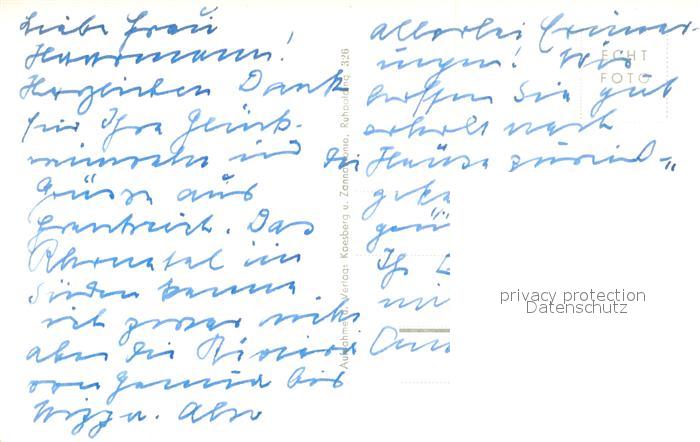 Liebe Frau
Haarmann!
Herzlichen Dank
für Ihre Glück-
wünsche und die
Grüsse aus
Frankreich. Das
Rhonetal im
Süden kenne
ich zwar nicht
aber die Riviera
von Genua bis
Nizza. Also
allerlei Erinner-
ungen! Wir
hoffen Sie gut
erholt nach
Hause zurück-
Ih
Aufnahme u. Verlag: Kaesberg u. Ruhpolding 326
ECHT
FOTO
privacy protection
Datenschutz